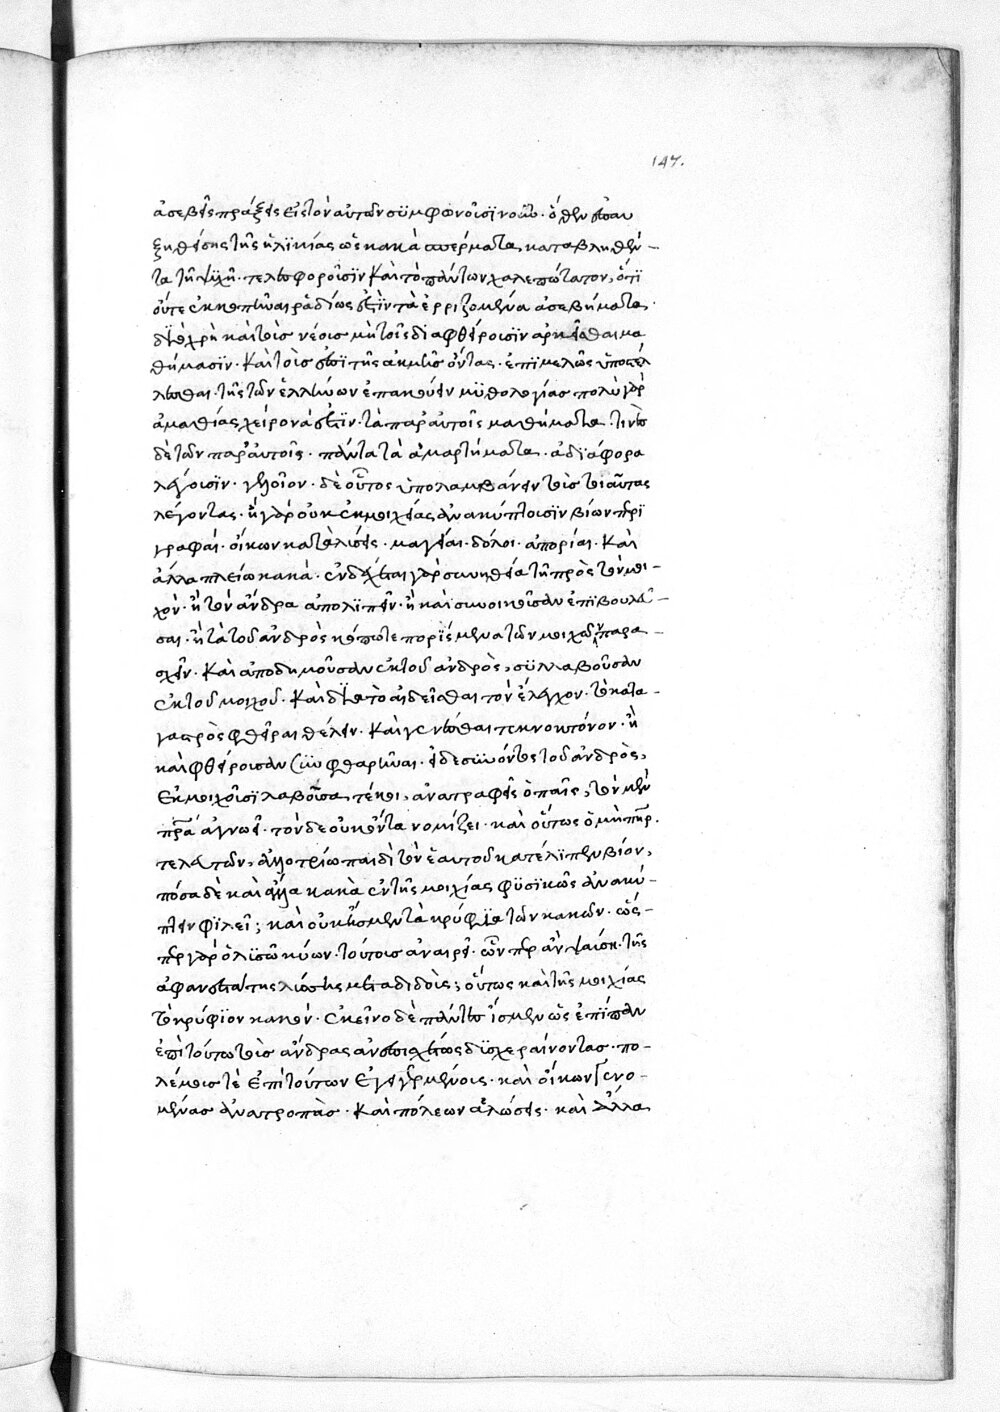 147.
ἀσεβεῖς πράξεις εἰς τὸν αὐτῶν συμφωνοῦσϊ νοῦν· ὅθεν ἐπαυ
ξηθείσης τῆς ἡλϊκίας ὡς κακὰ σπέρματα καταβληθέν-
τα τῆ ψϋχῆ· τελεσφοροῦσϊν καὶ τὸ πάντων χαλεπώτατον, ὅτϊ
οὔτε ἐκκοπῆναι ῥαδίως ἐστὶν τὰ ἐρριζομένα ἀσεβήματα·
διὸ χρὴ καὶ τοὺς νέους μὴ τοῖς διαφθείρουσϊν ἀρκεῖσθαι μα
θήμασϊν· καὶ τοὺς ἐπὶ τῆς ἀκμῆς ὄντας· ἐπϊμελῶς ὑποστέλ
λεσθαι· τῆς τῶν ἑλλήνων ἐπακούειν μϋθολογίας πολὺ γὰρ
ἀμαθίας χείρονά ἐστϊν· τὰ παρ' αὐτοῖς μαθήματα· τινὲς
δὲ τῶν παρ' αὐτοῖς· πάντα τὰ ἁμαρτήματα· ἀδϊάφορα
λέγουσϊν· γελοῖον· δὲ οὗτος ὑπολαμβάνειν τοὺς τοιαῦτας
λέγοντας· ἢ γὰρ οὐκ ἐκ μοιχείας ἀνακύπτουσϊν βίων περϊ
γραφαί· οἴκων καταλύσεις· μαγεῖαι· δόλοι· ἀπορίαι· καὶ
ἄλλα πλείω κακά· ἐνδέχεται γὰρ συνηθεία τῆ πρὸς τὸν μοι-
χόν· ἢ τὸν ἄνδρα ἀπολϊπεῖν· ἢ καὶ συνοικοῦσαν ἐπϊβουλεῦ-
σαι· ἢ τὰ τοῦ ἀνδρὸς κόπω τε πορϊσμένα τῶν μοιχῶν παρα-
σχεῖν· καὶ ἀποδημοῦσαν ἐκ τοῦ ἀνδρὸς, σϋλλαβοῦσαν
ἐκ τοῦ μοιχοῦ· καὶ διὰ τὸ αἰδεῖσθαι τὸν ἔλεγχον· τὸ κατα-
γαστρὸς φθεῖραι θέλειν· καὶ γενέσθαι τεκνοκτόνον· ἢ
καὶ φθείρουσαν συμφθαρῆναι· εἰ δὲ συνόντος τοῦ ἀνδρὸς,
ἐκ μοιχοῦσϊ λαβοῦσα τέκοι, ἀνατραφεὶς ὁ παῖς, τὸν μὲν
πρα ἀγνωεῖ· τὸν δὲ οὐκ ὄντα νομίζει· καὶ οὕτως ὁ μὴ πηρ·
τελευτῶν, ἀλλοτρίω παιδὶ τὸν ἑαυτοῦ κατέλϊπεν βίον,
πόσα δὲ καὶ ἄλλα κακὰ ἐκ τῆς μοιχίας φϋσϊκῶς ἀνακύ-
πτειν φϊλεῖ; καὶ οὐκ ἴσμεν τὰ κρύφϊα τῶν κακῶν· ὥς-
περ γὰρ ὁ λϋσσῶν κύων· τούτους ἀναιρεῖ· ὧν περ ἂν ψαύση· τῆς
ἀφανοῦς αὐτῆς λύσσης μεταδιδοὺς; οὕτως καὶ τῆς μοιχίας
τὸ κρύφϊον κακόν· ἐκεῖνο δὲ πάντες ἴσμεν ὡς ἐπίπαν
ἐπὶ τούτω τοὺς ἄνδρας ἀνϋποιστῶς δϋσχεραίνοντας· πο-
λέμους τὲ ἐπὶ τούτων ἐγεγερμένους· καὶ οἴκων γενο-
μένας ἀνατροπὰς· καὶ πόλεων ἁλώσεις· καὶ ἄλλα